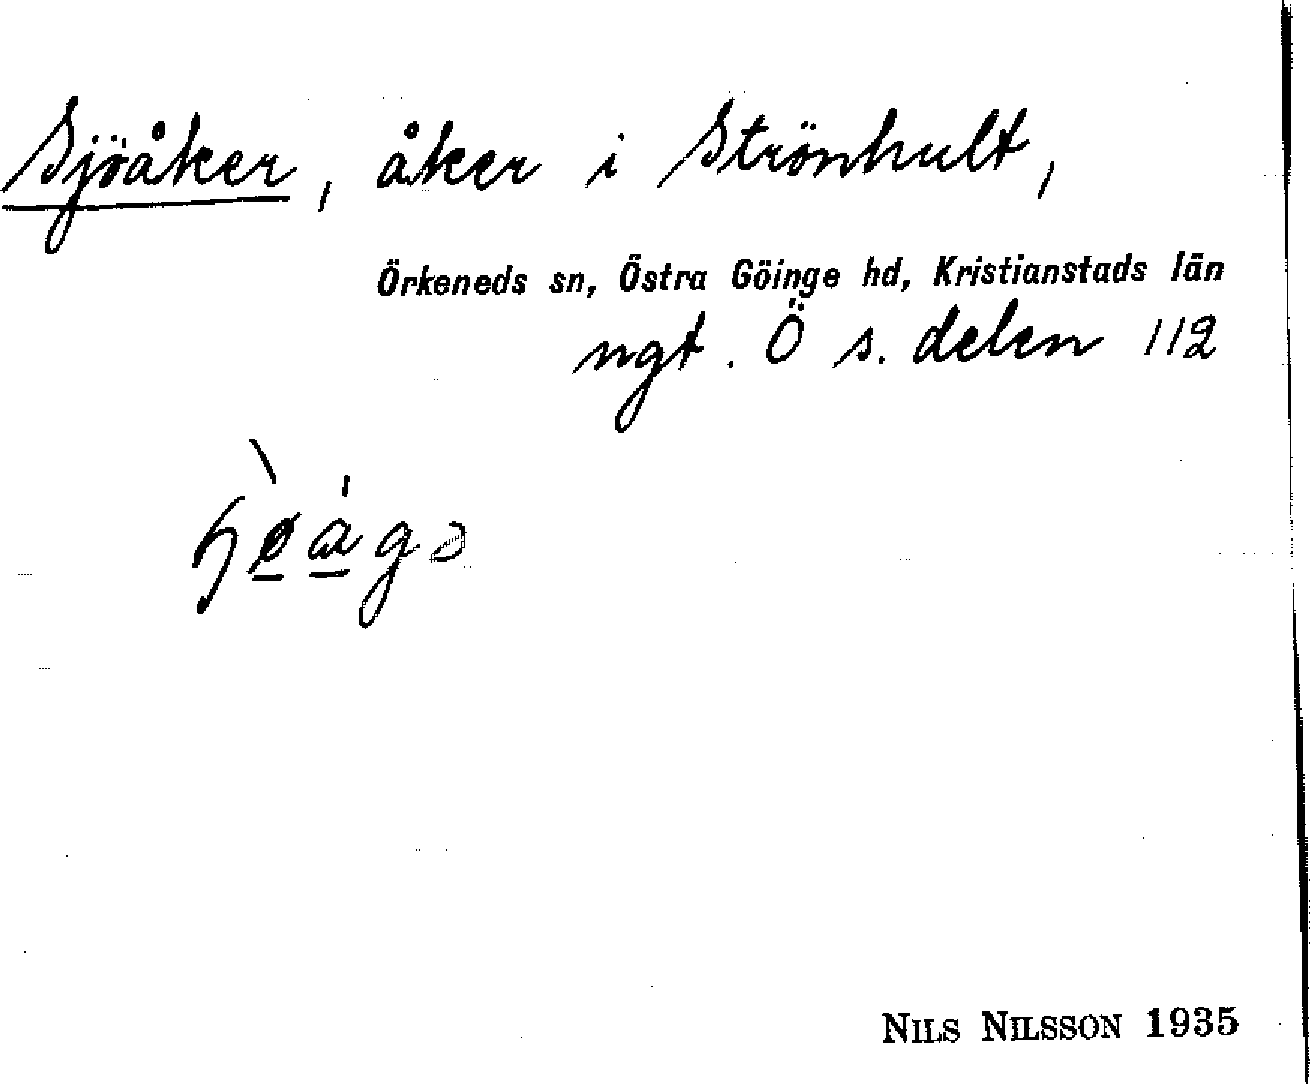 Sjöåker, åker i Strönhult,
Örkeneds sn, Östra Göinge hd, Kristianstads län
ngt. Ö s. delen 112
NILS NILSSON 1935